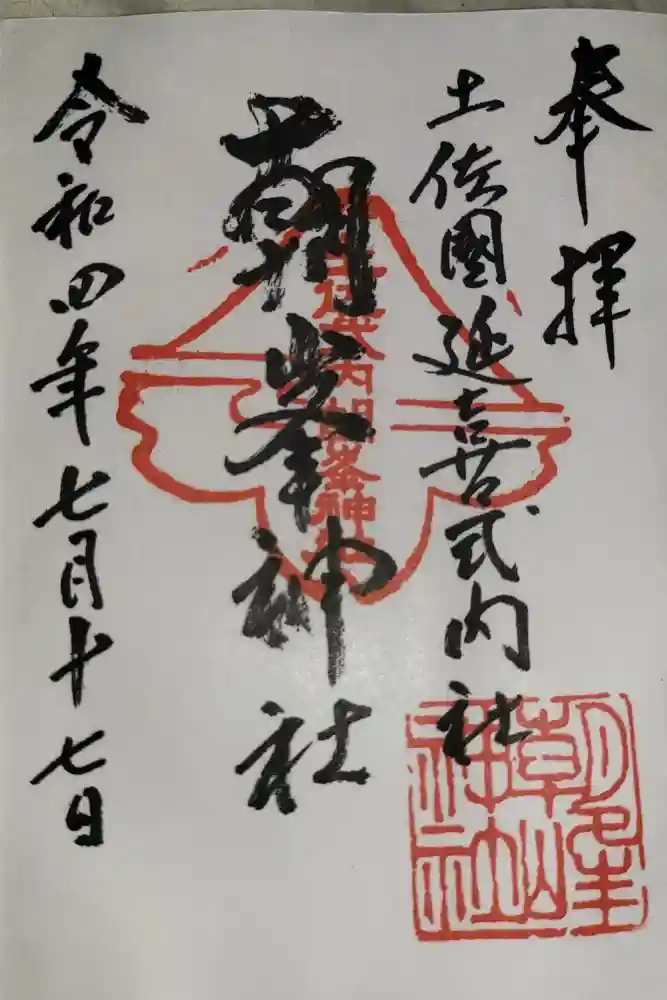 奉拝
土佐國延喜式内社
朝峯神社
令和四年七月十七日
朝峯神社